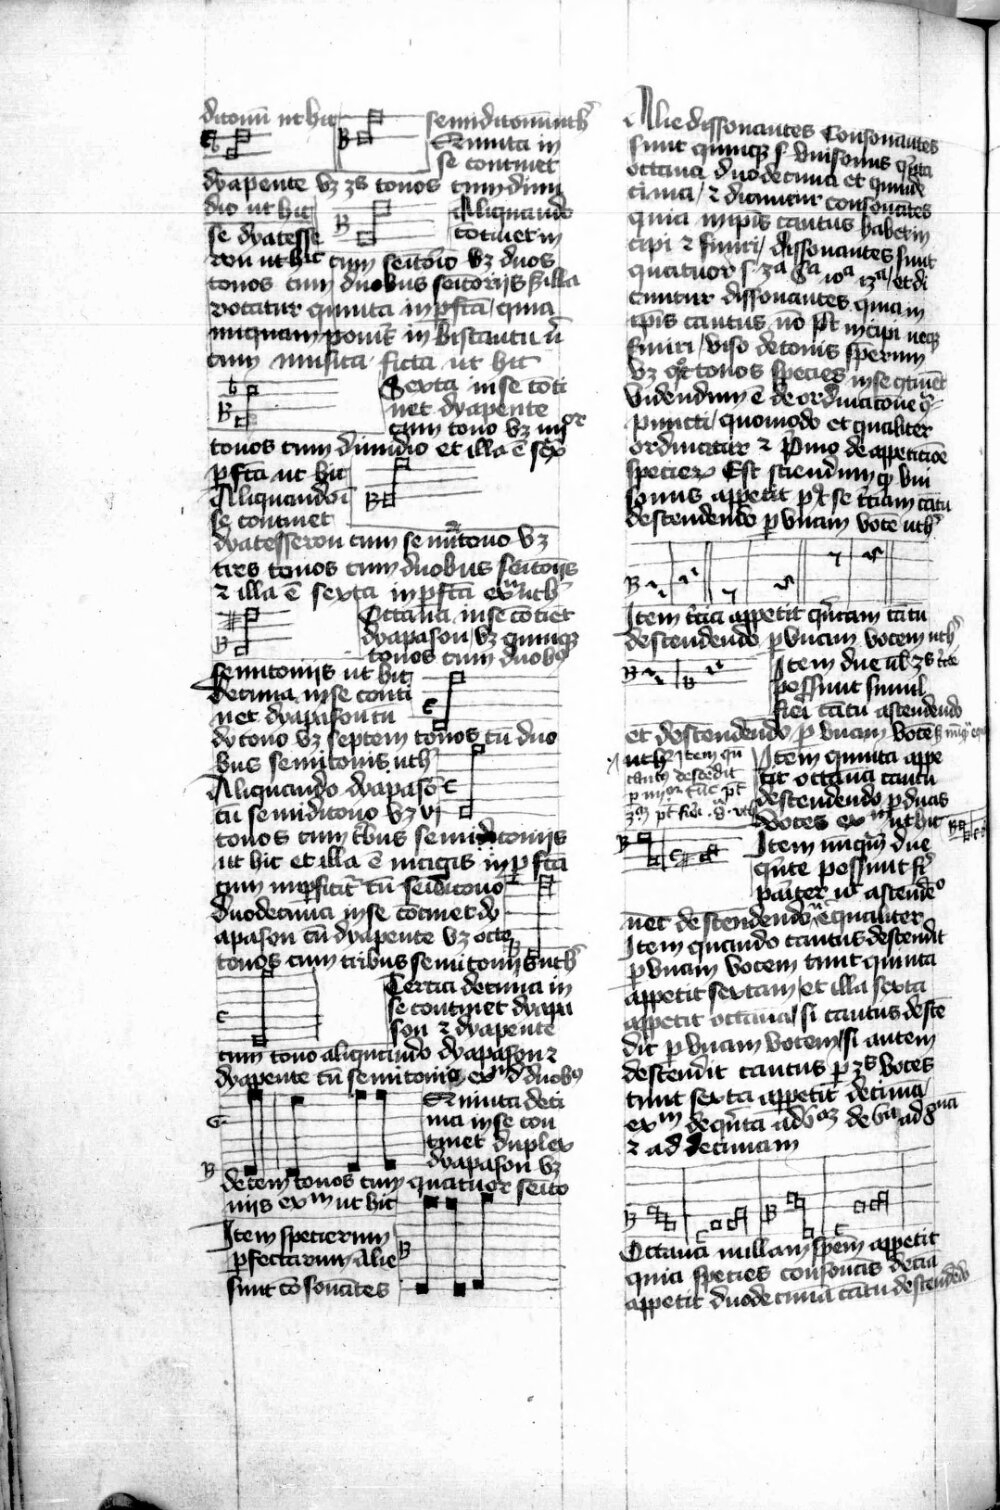 ditonū ut hic
semiditonū ut hͨ
Quinta in
se continet
dyapente vꝫ ꝫs tonos cum dimi
dio ut hic
Aliquando
continet in
se dyatesse
ron ut hic cum seitōio vꝫ duos
tonos cum duobus seitōrijs illa
vocatur quinta inpfcā quia
nuquam ponit in biscantu n̄
cum musica ficta ut hic
Sexta in se cōti
net dyapente
cum tono vꝫ iiiior
tonos cum dimidio et illa ē sex
pfcā ut hic
Aliquando ī
se continet
dyatesseron cum semitono vꝫ
tres tonos cum duobus seitonijs
⁊ illa ē sexta inpfcā exm ut hͨ
Octava in se cōtiet
dyapason vꝫ quinqꝫ
tonos cum duobꝯ
semitonijs ut hic
decima in se conti
net dyapason cū
dytono vꝫ septem tonos cū duo
bus semitonijs ut hͨ
Aliquando dyapasō
cū semiditono vꝫ vi
tonos cum tbus semitonijs
ut hic et illa ē magis inpfcā
cum
duodecima in se cōtinet dy
apason cū dyapente vꝫ octo
tonos cum tribus semitonijs ut hͨ
Tercia decima in
se continet dyapa
son ⁊ dyapente
cum tono aliquando dyapason ⁊
dyapente cū semitonio exm d duobꝯ
Quinta deci
ma in se con
tinet duplex
dyapason vꝫ
decem tonos cum quatuor seito
nijs exm ut hic
Item specierum
pfectarum Alie
sunt cōsonātes
Alie dissonantes Consonantes
sunt quinqꝫ s vnisonus qnta
octava duodecima et quinde
cima ⁊ dicuntur consonātes
quia in ipis cantus habet in
cipi ⁊ finiri dissonantes sunt
quatuor s 3a 6a 10a 13a et di
cuntur dissonantes quia in
ipis cantus nō pt incipi neqꝫ
finiri viso de tonis spērum
vꝫ tonos species in se cōtinēt
videndum ē de ordinacione
puncti quomodo et qualiter
ordinatur ⁊ pmo de appeticiōe
specierꝝ Est sciendum ꝙ vni
sonus appetit p se tciam cātu
descendendo p vnam voce ut hͨ
Item tcia appetit qntam cātu
descendendo p vnam vocem ut hͨ
Item due
possunt simul
fieri cātu ascendendo
et descendendo p vnam voce
ut hͨ Item quinta appe
tit octavā cantu
descendendo p duas
voces exm ut hic
Item nūqm due
qnte possunt fi
pariter ut ascendēo
nec descendendo equaliter
Item quando cantus descendit
p vnam vocem tunc quinta
appetit sextam et illa sexta
appetit octavā si cantus desce
dit p vnam vocem si autem
descendit cantus p ꝫs voces
tunc sexta appetit decima
exm de qnta ad 6am de 6a ad 8ua
⁊ ad decimam
Octava nullam spēm appetit
quia species consonās decia
appetit duodecimā cātu descendēdo